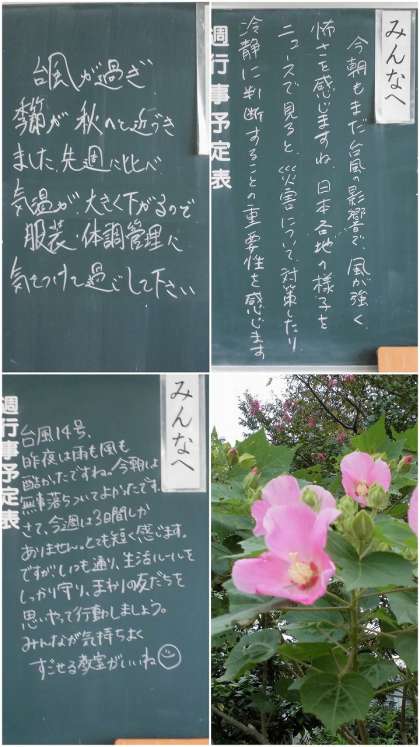 台風が過ぎ
季節が秋へと近づき
ました。先週に比べ
気温が大きく下がるので
服装・体調管理に
気をつけて過ごして下さい
みんなへ
今朝もまだ台風の影響で、風が強く、
怖さを感じますね。日本各地の様子を
ニュースで見ると、災害について対策したり、
冷静に判断することの重要性を感じます
週行事予定表
みんなへ
週行事予定表
台風14号、
昨夜は雨も風も
酷かったですね。今朝は
無事落ちついてよかったです。
さて、今週は3日間しか
ありません。とても短く感じます。
ですが、いつも通り、生活ルールを
しっかり守り、まわりの友だちを
思いやって行動しましょう。
みんなが気持ちよく
すごせる教室がいいね